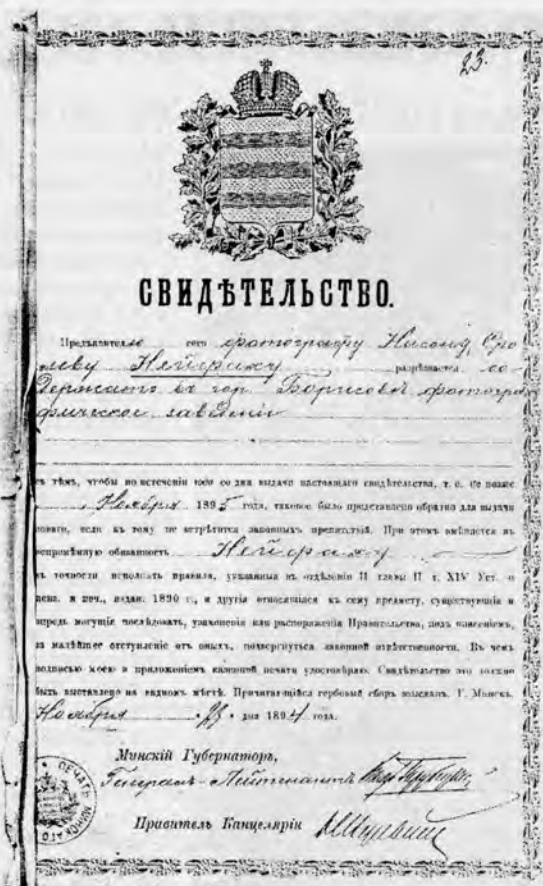 23.
СВИДѢТЕЛЬСТВО.
Предъявителю сего фотографу Нисону Сро
леву Нейфаху разрѣшается со
держать въ гор. Борисовѣ фотогра
фическое заведеніе
съ тѣмъ, чтобы по истеченіи года со дня выдачи настоящаго свидѣтельства, т. е. не позже
Ноября 1895 года, таковое было представлено обратно для выдачи
новаго, если къ тому не встрѣтится законныхъ препятствій. При этомъ вмѣняется въ
непремѣнную обязанность Нейфаху
въ точности исполнять правила, указанныя въ отдѣленіи II главы II т. XIV Уст. о
ценз. и печ., издан. 1890 г., и другія относящіяся къ сему предмету, существующія и
впредь могущія послѣдовать, узаконенія или распоряженія Правительства, подъ опасеніемъ,
за малѣйшее отступленіе отъ оныхъ, подвергнуться законной отвѣтственности. Въ чемъ
подписью моею и приложеніемъ казенной печати удостовѣряю. Свидѣтельство это должно
быть выставлено на видномъ мѣстѣ. Причитающійся гербовый сборъ взысканъ. Г. Минскъ.
Ноября 23 дня 1894 года.
Минскій Губернаторъ,
Генералъ-Лейтенантъ
Правитель Канцеляріи
ПЕЧАТЬ МИНСКАГО